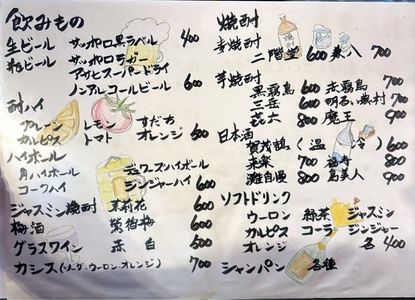 飲みもの
生ビール サッポロ黒ラベル 400
瓶ビール サッポロラガー
アサヒスーパードライ 600
ノンアルコールビール
酎ハイ
プレーン レモン すだち
カルピス トマト オレンジ 500
ハイボール
角ハイボール デュワーズハイボール
コークハイ ジンジャーハイ 600
ジャスミン焼酎 茉莉花 600
梅酒 紫蘇梅 600
グラスワイン 赤 白 500
カシス(ソーダ、ウーロン、オレンジ) 700
焼酎
麦焼酎
二階堂 600 兼八 700
芋焼酎
黒霧島 600 赤霧島 700
三岳 600 明るい農村 700
㐂六 800 魔王 900
日本酒
賀茂鶴 (温 冷) 600
700 福寿 800
灘自慢 800 島美人 900
ソフトドリンク
ウーロン 緑茶 ジャスミン
カルピス コーラ ジンジャー
オレンジ 各 400
シャンパン 各種